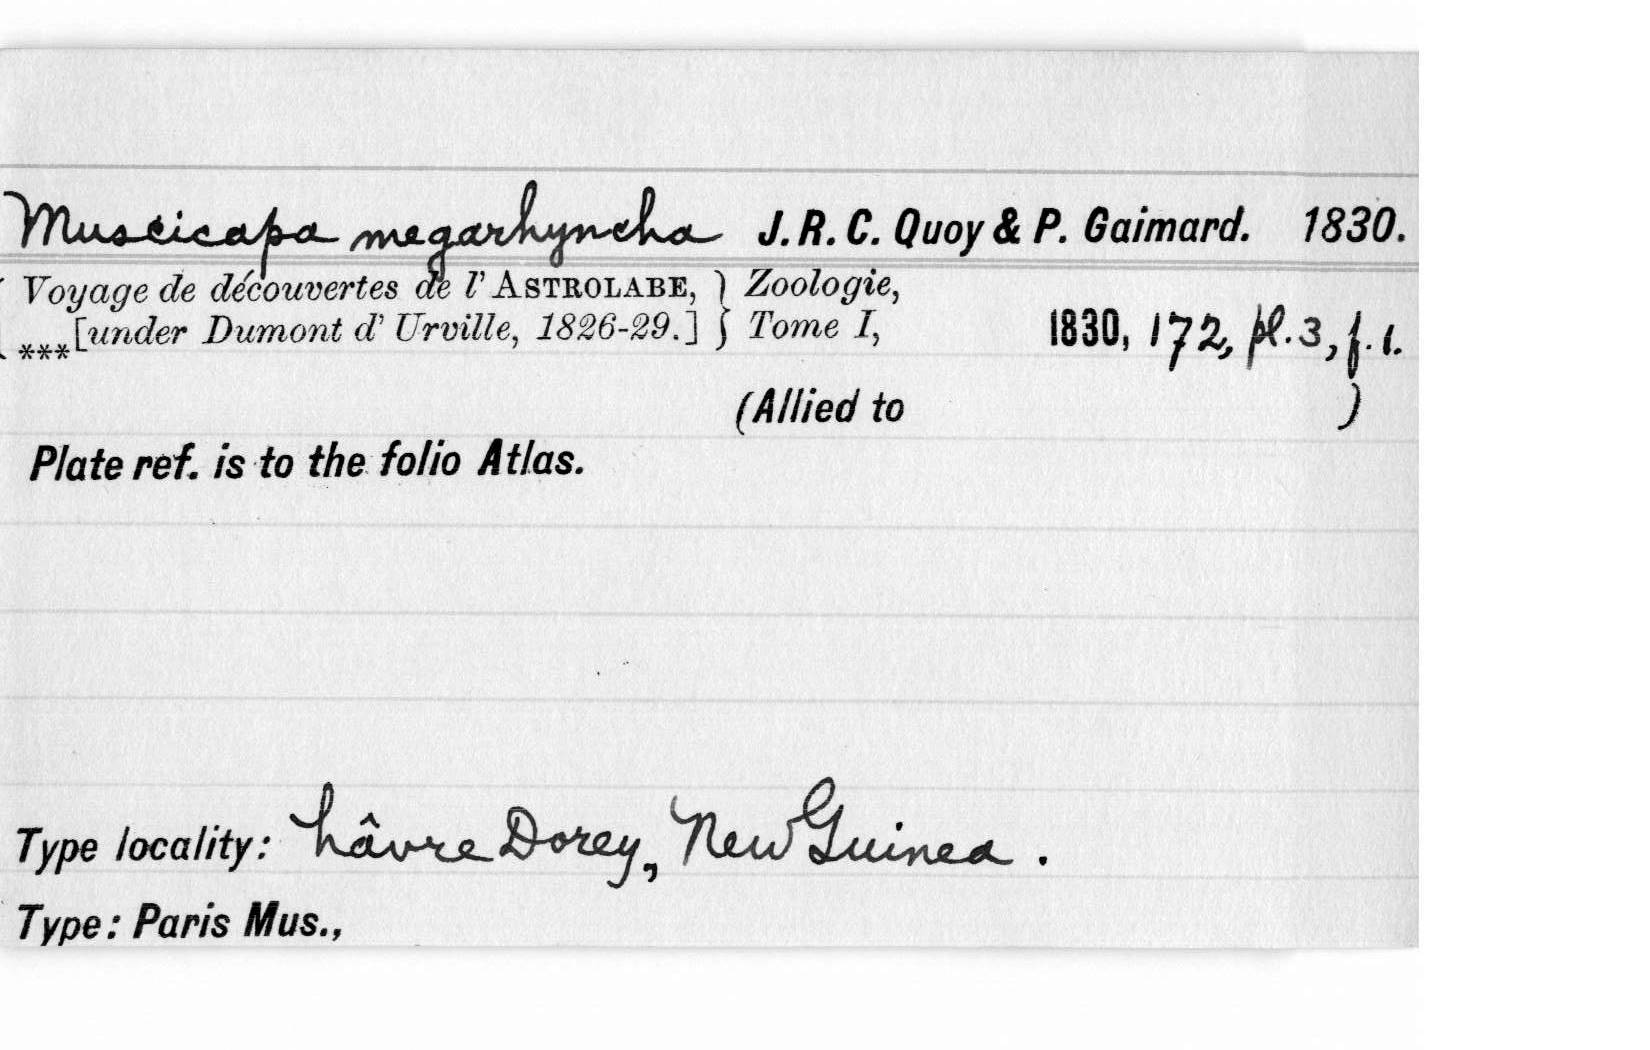 Muscicapa megarhyncha J. R. C. Quoy & P. Gaimard. 1830.
Voyage de découvertes de l'ASTROLABE, } Zoologie,
***[under Dumont d'Urville, 1826-29.] } Tome I, 1830, 172, pl. 3, f. 1.
(Allied to )
Plate ref. is to the folio Atlas.
Type locality: hâvre Dorey, New Guinea.
Type: Paris Mus.,